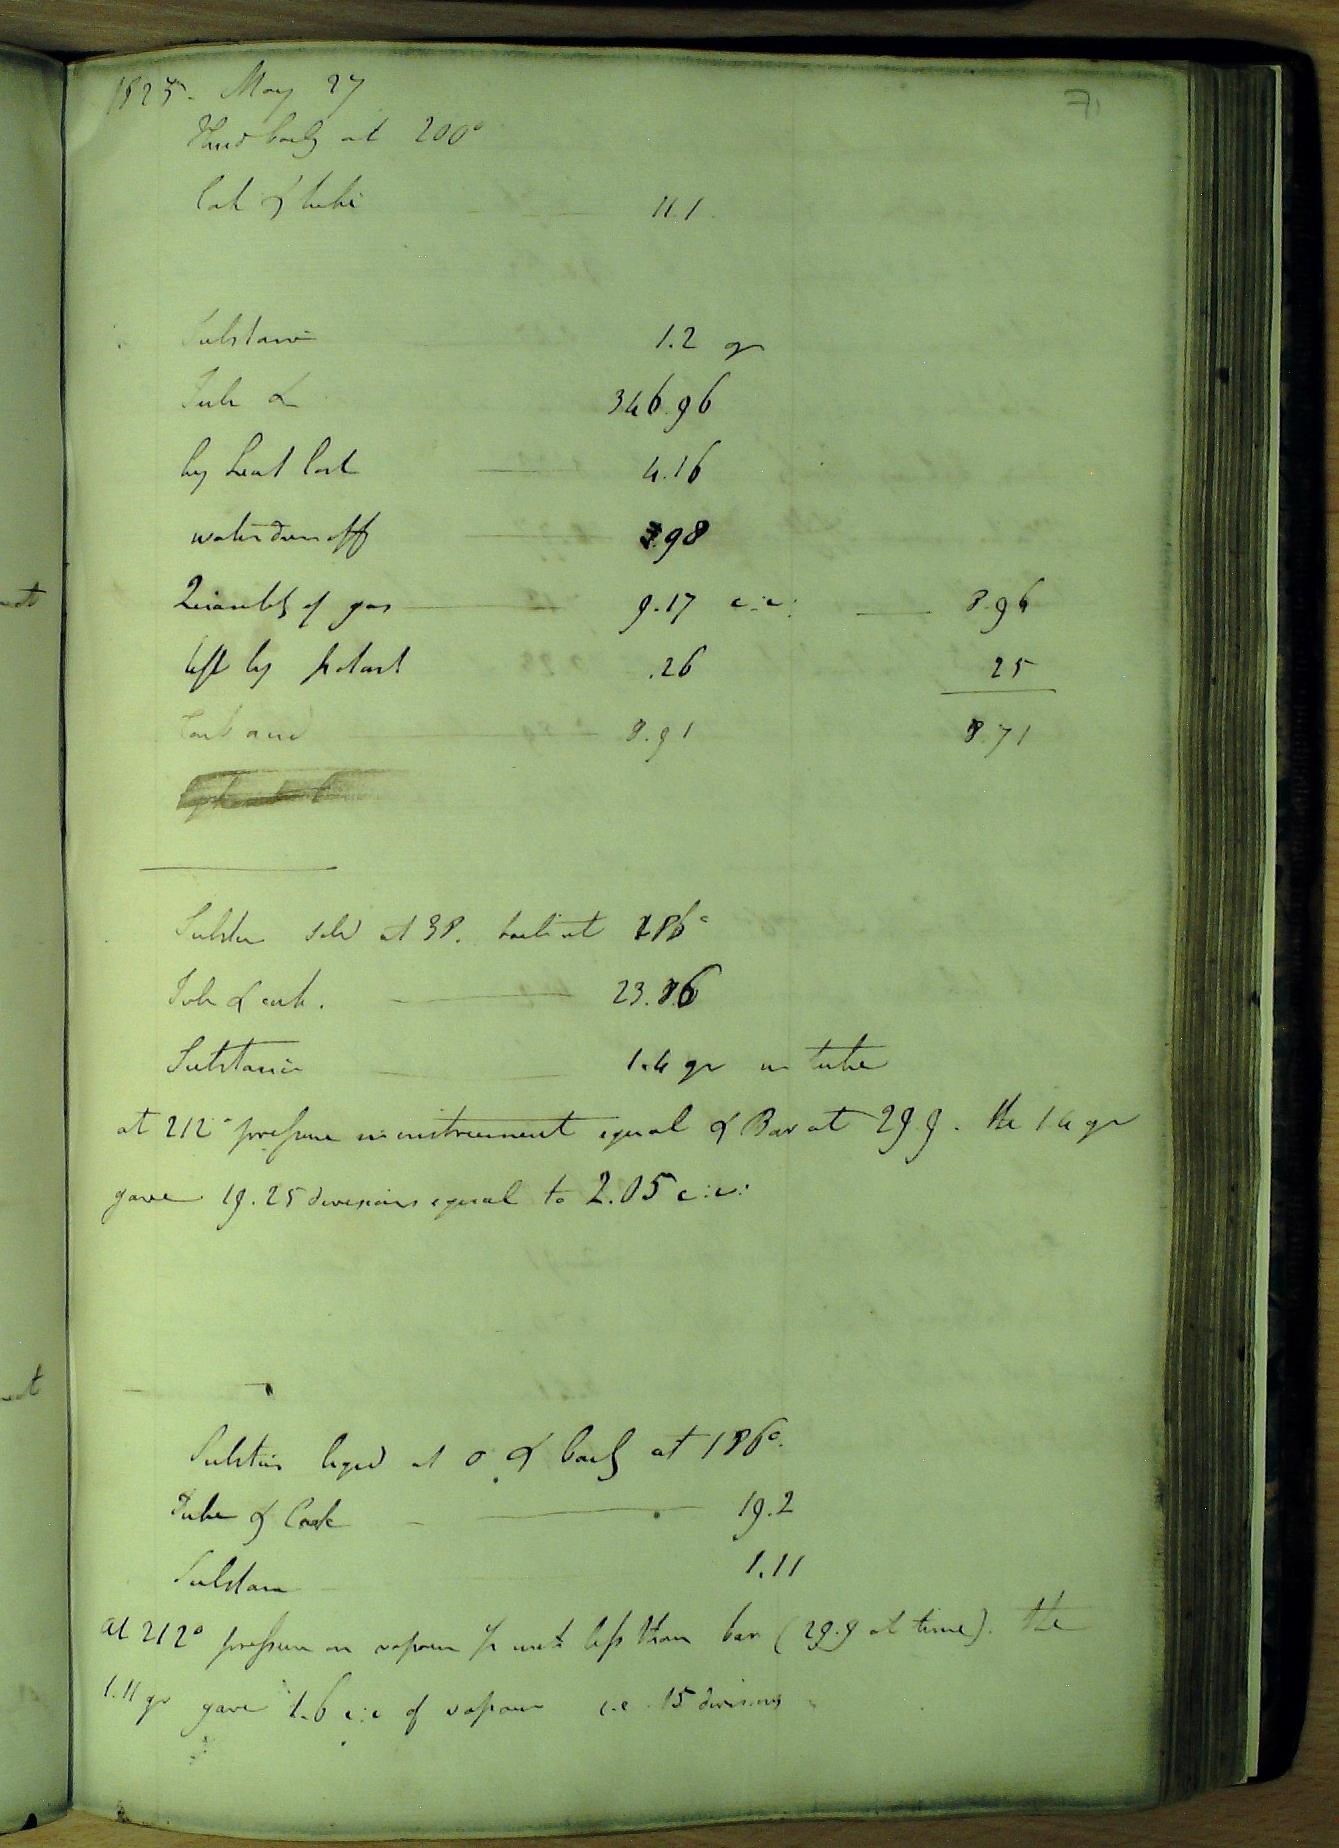 1825. May 27
71
Fluid boils at 200°
Cork & tube 11.1
Substance 1.2 gr
Tube & 346.96
by heat lost 4.16
water driven off .98
Quantity of gas 9.17 c:i: 8.96
left by potash .26 25
Carb acid 8.91 8.71
Substan solid at 38. boils at 186°
Tube & cork. 23.86
Substance 1.4 gr in tube
at 212° pressure in instrument equal & Bar at 29.9. the 1.4 gr
gave 19.25 divisions equal to 2.05 c:i:
Substan liquid at 0 & boils at 186°.
Tube & Cork 19.2
Substan 1.11
at 212° pressure on vapour inch less than bar (29.9 at time). the
1.11 gr gave 1.6 c:i: of vapour i.e. 15 divisions